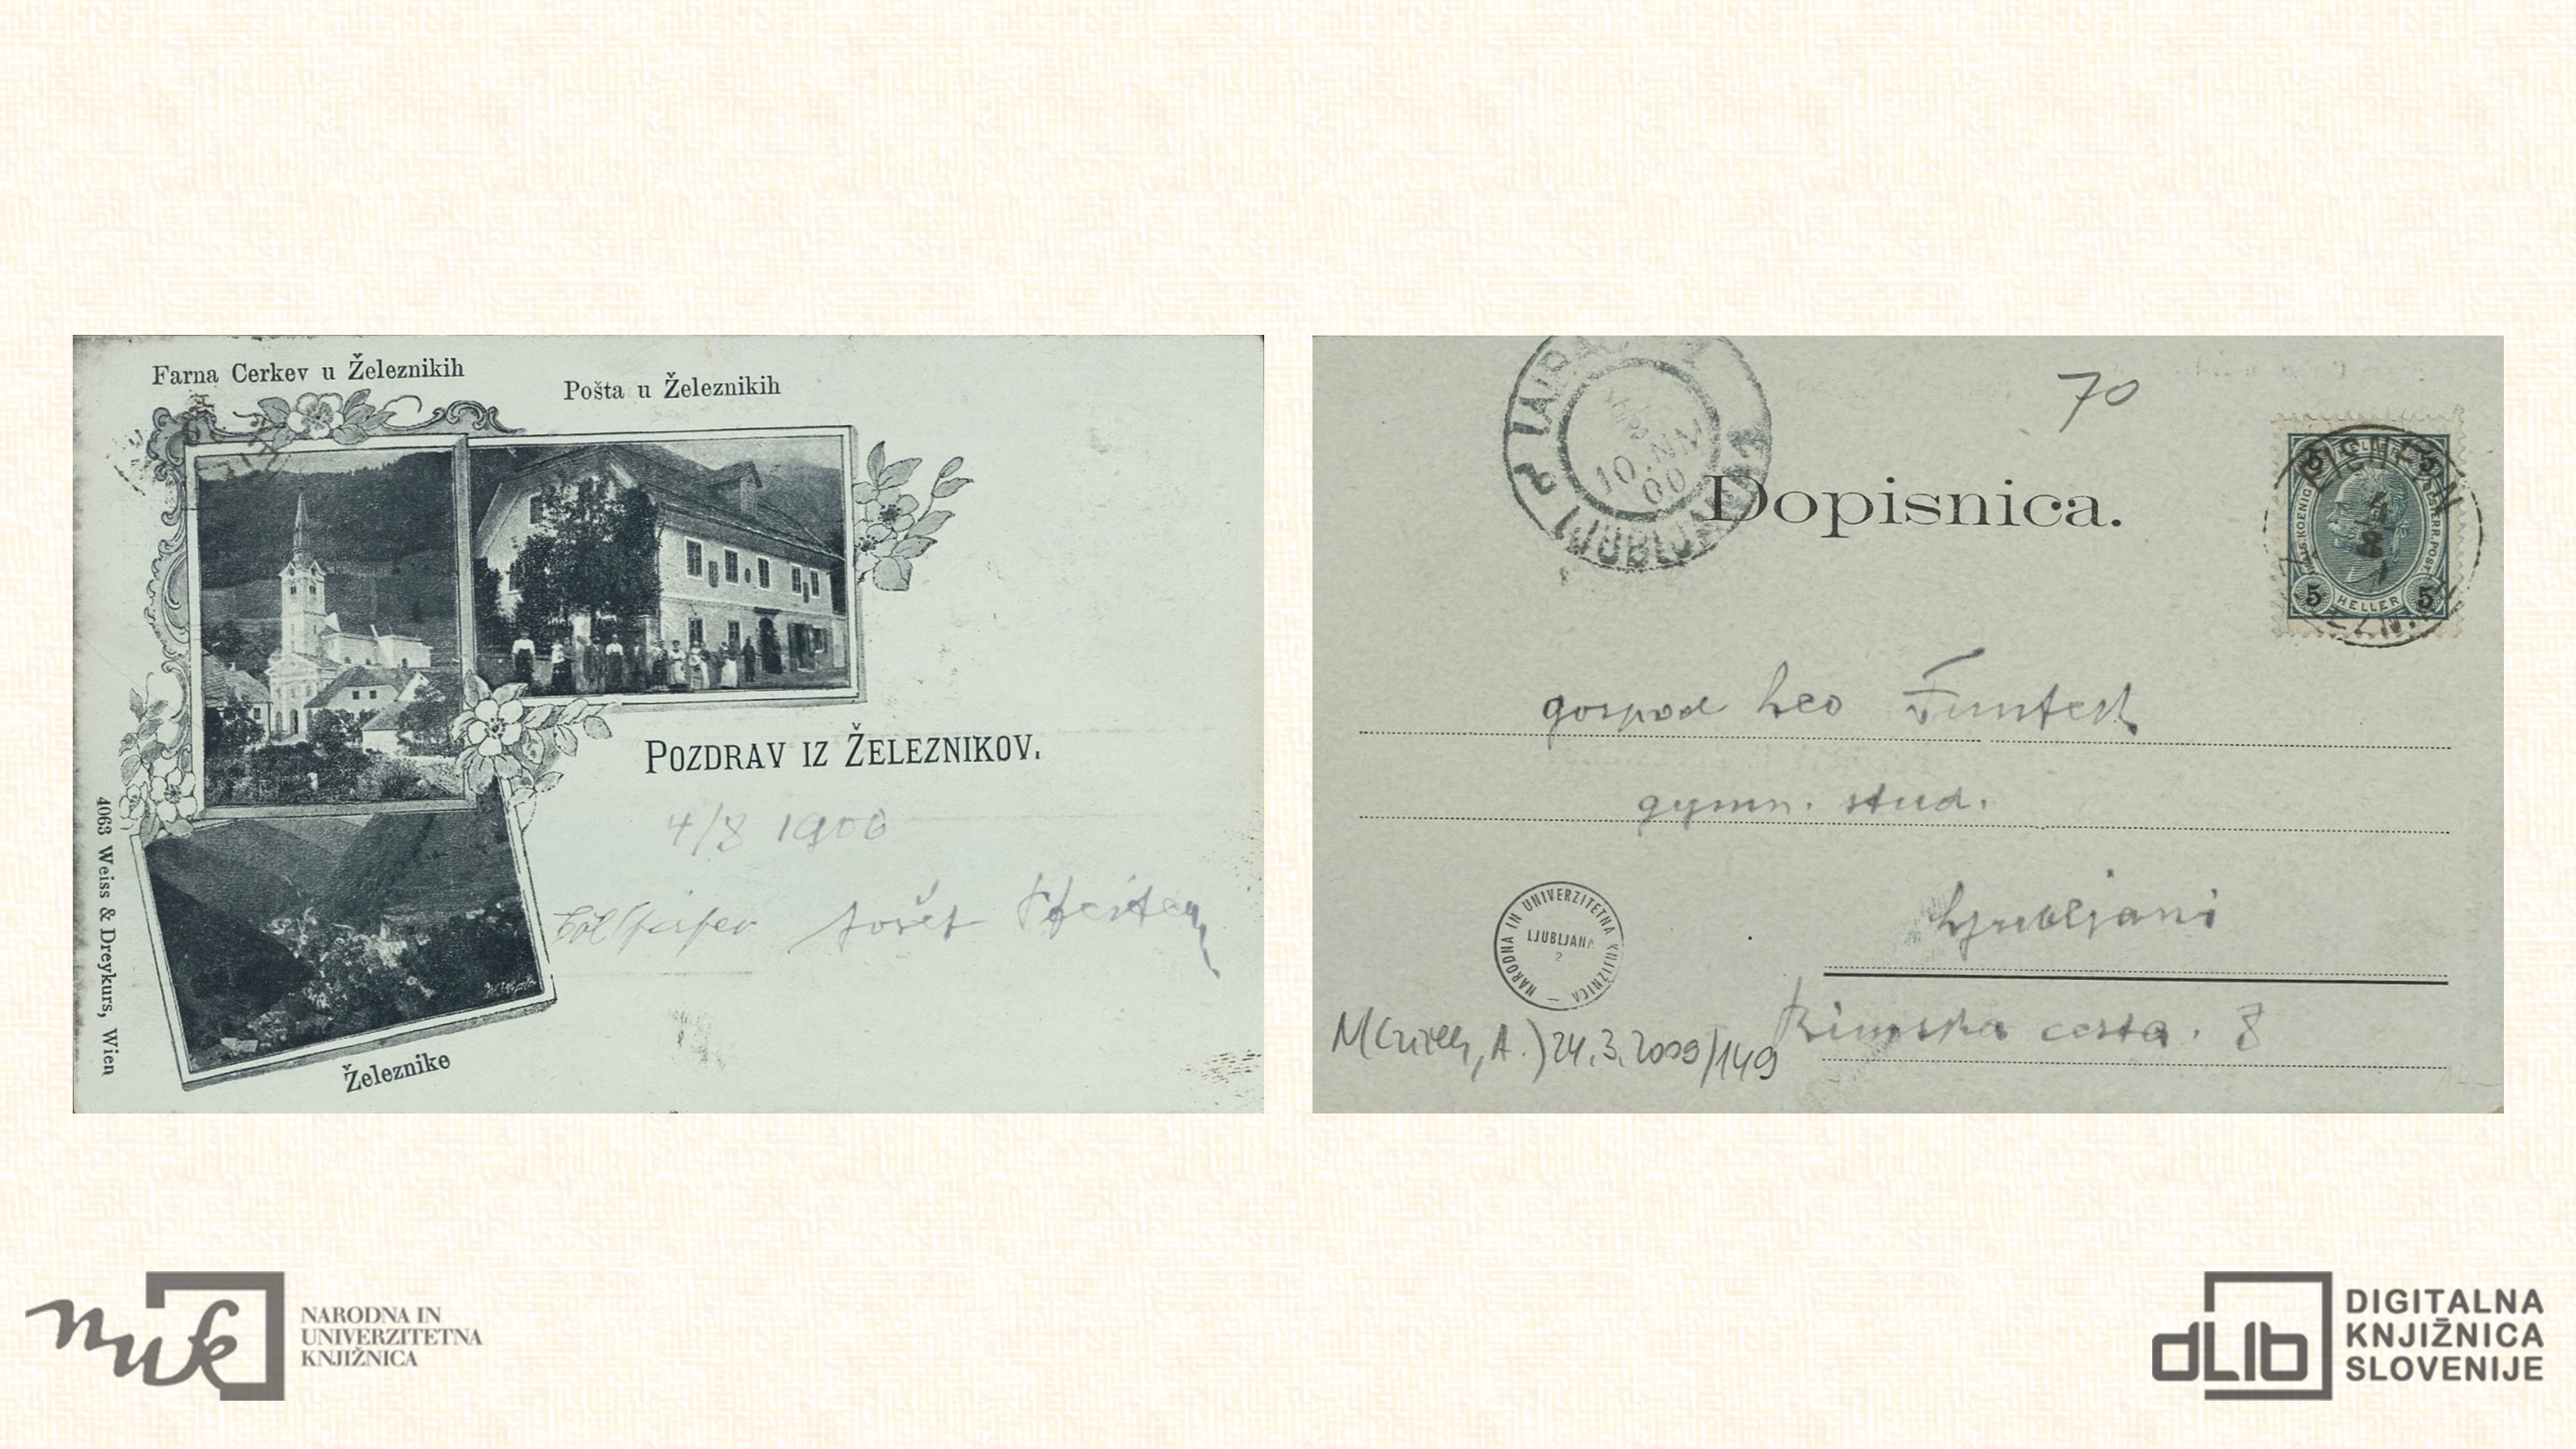 Farna Cerkev u Železnikih
Pošta u Železnikih
POZDRAV IZ ŽELEZNIKOV.
4/8 1900
Železnike
4063 Weiss & Dreykurs, Wien
70
Dopisnica.
10. NM
00
5 HELLER 5
gospod Leo Funtek
gymn. stud.
Ljubljani
Rimska cesta. 8
NARODNA IN UNIVERZITETNA KNJIŽNICA –
LJUBLJANA
2
24.3.2009/149
nuk
NARODNA IN
UNIVERZITETNA
KNJIŽNICA
dLib
DIGITALNA
KNJIŽNICA
SLOVENIJE